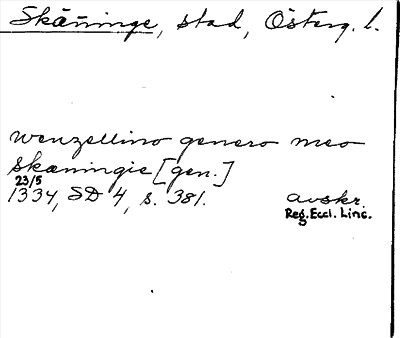 Skäninge, stad, Österg. l.
wenzellino genero meo
skæningie [gen.]
23/5
1334, SD 4, s. 381. avskr.
Reg. Eccl. Linc.